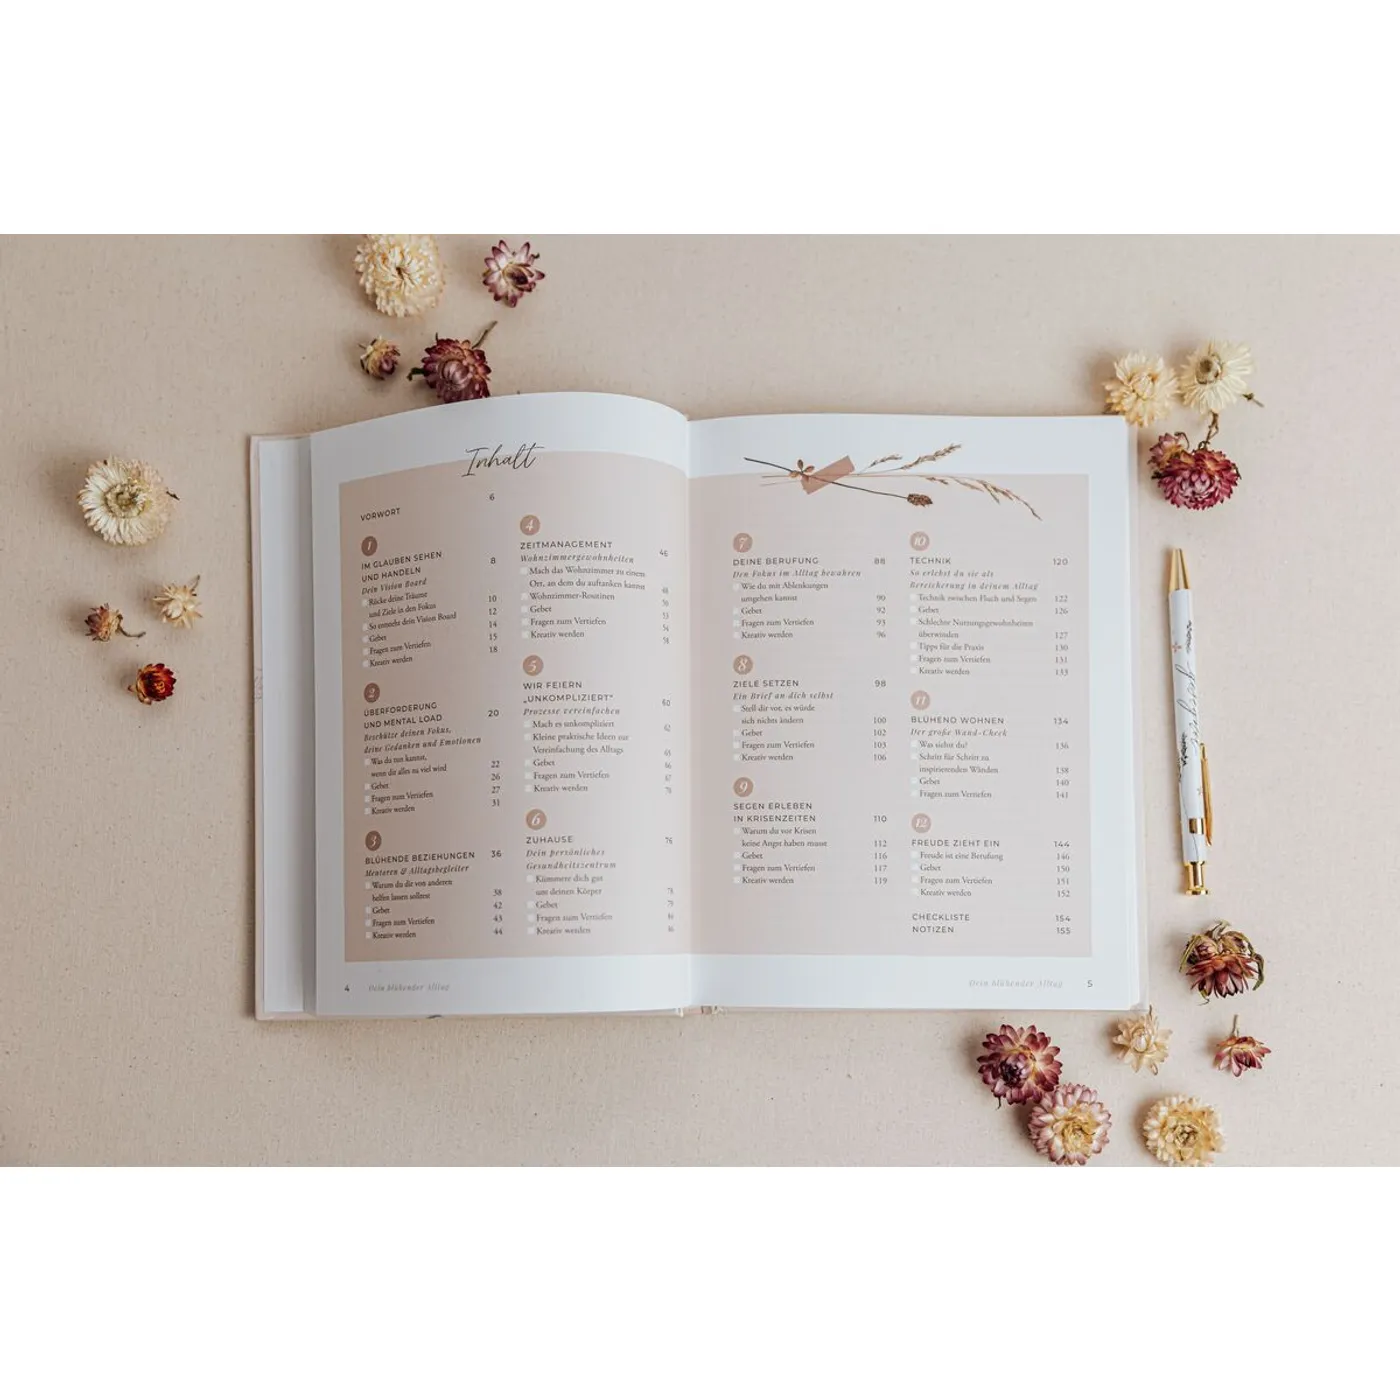 Inhalt
VORWORT 6
1
IM GLAUBEN SEHEN
UND HANDELN 8
Dein Vision Board
Rücke deine Träume
und Ziele in den Fokus 10
So entsteht dein Vision Board 12
Gebet 14
Fragen zum Vertiefen 15
Kreativ werden 18
2
ÜBERFORDERUNG
UND MENTAL LOAD 20
Beschütze deinen Fokus,
deine Gedanken und Emotionen
Was du tun kannst,
wenn dir alles zu viel wird 22
Gebet 26
Fragen zum Vertiefen 27
Kreativ werden 31
3
BLÜHENDE BEZIEHUNGEN 36
Mentoren & Alltagsbegleiter
Warum du dir von anderen
helfen lassen solltest 38
Gebet 42
Fragen zum Vertiefen 43
Kreativ werden 44
4
ZEITMANAGEMENT 46
Wohnzimmergewohnheiten
Mach das Wohnzimmer zu einem
Ort, an dem du auftanken kannst 48
Wohnzimmer-Routinen 50
Gebet 53
Fragen zum Vertiefen 54
Kreativ werden 58
5
WIR FEIERN
„UNKOMPLIZIERT“ 60
Prozesse vereinfachen
Mach es unkompliziert 62
Kleine praktische Ideen zur
Vereinfachung des Alltags 63
Gebet 66
Fragen zum Vertiefen 67
Kreativ werden 70
6
ZUHAUSE 76
Dein persönliches
Gesundheitszentrum
Kümmere dich gut
um deinen Körper 78
Gebet
Fragen zum Vertiefen
Kreativ werden
4 Dein blühender Alltag
7
DEINE BERUFUNG 88
Den Fokus im Alltag bewahren
Wie du mit Ablenkungen
umgehen kannst 90
Gebet 92
Fragen zum Vertiefen 93
Kreativ werden 96
8
ZIELE SETZEN 98
Ein Brief an dich selbst
Stell dir vor, es würde
sich nichts ändern 100
Gebet 102
Fragen zum Vertiefen 103
Kreativ werden 106
9
SEGEN ERLEBEN
IN KRISENZEITEN 110
Warum du vor Krisen
keine Angst haben musst 112
Gebet 116
Fragen zum Vertiefen 117
Kreativ werden 119
10
TECHNIK 120
So erlebst du sie als
Bereicherung in deinem Alltag
Technik zwischen Fluch und Segen 122
Gebet 126
Schlechte Nutzungsgewohnheiten
überwinden 127
Tipps für die Praxis 130
Fragen zum Vertiefen 131
Kreativ werden 133
11
BLÜHEND WOHNEN 134
Der große Wand-Check
Was siehst du? 136
Schritt für Schritt zu
inspirierenden Wänden 138
Gebet 140
Fragen zum Vertiefen 141
12
FREUDE ZIEHT EIN 144
Freude ist eine Berufung 146
Gebet 150
Fragen zum Vertiefen 151
Kreativ werden 152
CHECKLISTE 154
NOTIZEN 155
Dein blühender Alltag 5